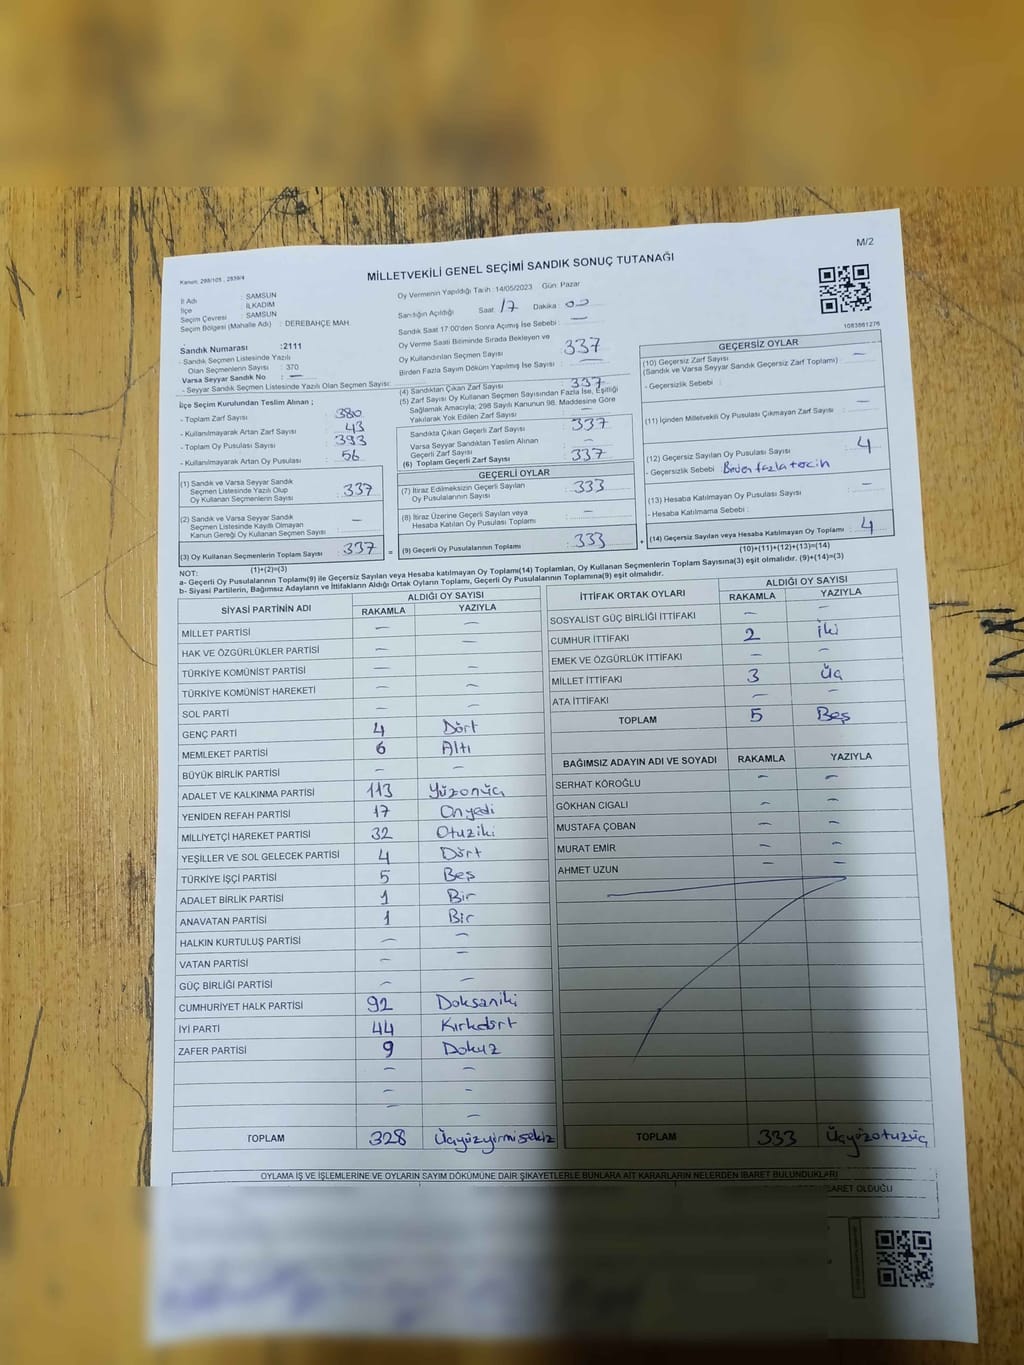 M/2
Kanun: 298/105 , 2839/4
MİLLETVEKİLİ GENEL SEÇİMİ SANDIK SONUÇ TUTANAĞI
İl Adı : SAMSUN
İlçe : İLKADIM
Seçim Çevresi : SAMSUN
Seçim Bölgesi (Mahalle Adı) : DEREBAHÇE MAH.
Oy Vermenin Yapıldığı Tarih : 14/05/2023 Gün: Pazar
Sandığın Açıldığı Saat : 17 Dakika : 00
Sandık Saat 17:00'den Sonra Açılmış İse Sebebi : —
Oy Verme Saati Bitiminde Sırada Bekleyen ve
Oy Kullandırılan Seçmen Sayısı 337
Birden Fazla Sayım Döküm Yapılmış İse Sayısı : —
1083861276
Sandık Numarası :2111
- Sandık Seçmen Listesinde Yazılı
Olan Seçmenlerin Sayısı : 370
Varsa Seyyar Sandık No : —
- Seyyar Sandık Seçmen Listesinde Yazılı Olan Seçmen Sayısı:
İlçe Seçim Kurulundan Teslim Alınan ;
- Toplam Zarf Sayısı : 380
- Kullanılmayarak Artan Zarf Sayısı : 43
- Toplam Oy Pusulası Sayısı : 393
- Kullanılmayarak Artan Oy Pusulası : 56
(1) Sandık ve Varsa Seyyar Sandık
Seçmen Listesinde Yazılı Olup
Oy Kullanan Seçmenlerin Sayısı : 337
(2) Sandık ve Varsa Seyyar Sandık
Seçmen Listesinde Kayıtlı Olmayan
Kanun Gereği Oy Kullanan Seçmen Sayısı : —
(3) Oy Kullanan Seçmenlerin Toplam Sayısı : 337
(1)+(2)=(3)
(4) Sandıktan Çıkan Zarf Sayısı : 337
(5) Zarf Sayısı Oy Kullanan Seçmen Sayısından Fazla İse, Eşitliği
Sağlamak Amacıyla; 298 Sayılı Kanunun 98. Maddesine Göre
Yakılarak Yok Edilen Zarf Sayısı : —
Sandıkta Çıkan Geçerli Zarf Sayısı : 337
Varsa Seyyar Sandıktan Teslim Alınan
Geçerli Zarf Sayısı : —
(6) Toplam Geçerli Zarf Sayısı : 337
GEÇERLİ OYLAR
(7) İtiraz Edilmeksizin Geçerli Sayılan
Oy Pusulalarının Sayısı : 333
(8) İtiraz Üzerine Geçerli Sayılan ve
Hesaba Katılan Oy Pusulası Toplamı : —
= (9) Geçerli Oy Pusulalarının Toplamı : 333
GEÇERSİZ OYLAR
(10) Geçersiz Zarf Sayısı : —
(Sandık ve Varsa Seyyar Sandık Geçersiz Zarf Toplamı)
- Geçersizlik Sebebi :
(11) İçinden Milletvekili Oy Pusulası Çıkmayan Zarf Sayısı : —
(12) Geçersiz Sayılan Oy Pusulası Sayısı : 4
- Geçersizlik Sebebi Birden fazla tercih
(13) Hesaba Katılmayan Oy Pusulası Sayısı : —
- Hesaba Katılmama Sebebi :
+ (14) Geçersiz Sayılan veya Hesaba Katılmayan Oy Toplamı : 4
(10)+(11)+(12)+(13)=(14)
NOT:
a- Geçerli Oy Pusulalarının Toplamı(9) ile Geçersiz Sayılan veya Hesaba Katılmayan Oy Toplamı(14) Toplamları, Oy Kullanan Seçmenlerin Toplam Sayısına(3) eşit olmalıdır. (9)+(14)=(3)
b- Siyasi Partilerin, Bağımsız Adayların ve İttifakların Aldığı Ortak Oyların Toplamı, Geçerli Oy Pusulalarının Toplamına(9) eşit olmalıdır.
SİYASİ PARTİNİN ADI ALDIĞI OY SAYISI
RAKAMLA YAZIYLA
MİLLET PARTİSİ — —
HAK VE ÖZGÜRLÜKLER PARTİSİ — —
TÜRKİYE KOMÜNİST PARTİSİ — —
TÜRKİYE KOMÜNİST HAREKETİ — —
SOL PARTİ — —
GENÇ PARTİ 4 Dört
MEMLEKET PARTİSİ 6 Altı
BÜYÜK BİRLİK PARTİSİ — —
ADALET VE KALKINMA PARTİSİ 113 Yüzonüç
YENİDEN REFAH PARTİSİ 17 Onyedi
MİLLİYETÇİ HAREKET PARTİSİ 32 Otuziki
YEŞİLLER VE SOL GELECEK PARTİSİ 4 Dört
TÜRKİYE İŞÇİ PARTİSİ 5 Beş
ADALET BİRLİK PARTİSİ 1 Bir
ANAVATAN PARTİSİ 1 Bir
HALKIN KURTULUŞ PARTİSİ — —
VATAN PARTİSİ — —
GÜÇ BİRLİĞİ PARTİSİ — —
CUMHURİYET HALK PARTİSİ 92 Doksaniki
İYİ PARTİ 44 Kırkdört
ZAFER PARTİSİ 9 Dokuz
— —
— —
— —
TOPLAM 328 Üçyüzyirmisekiz
İTTİFAK ORTAK OYLARI ALDIĞI OY SAYISI
RAKAMLA YAZIYLA
SOSYALİST GÜÇ BİRLİĞİ İTTİFAKI — —
CUMHUR İTTİFAKI 2 İki
EMEK VE ÖZGÜRLÜK İTTİFAKI — —
MİLLET İTTİFAKI 3 Üç
ATA İTTİFAKI — —
TOPLAM 5 Beş
BAĞIMSIZ ADAYIN ADI VE SOYADI RAKAMLA YAZIYLA
SERHAT KÖROĞLU — —
GÖKHAN CIGALI — —
MUSTAFA ÇOBAN — —
MURAT EMİR — —
AHMET UZUN — —
TOPLAM 333 Üçyüzotuzüç
OYLAMA İŞ VE İŞLEMLERİNE VE OYLARIN SAYIM DÖKÜMÜNE DAİR ŞİKAYETLERLE BUNLARA AİT KARARLARIN NELERDEN İBARET BULUNDUKLARI
BARET OLDUĞU